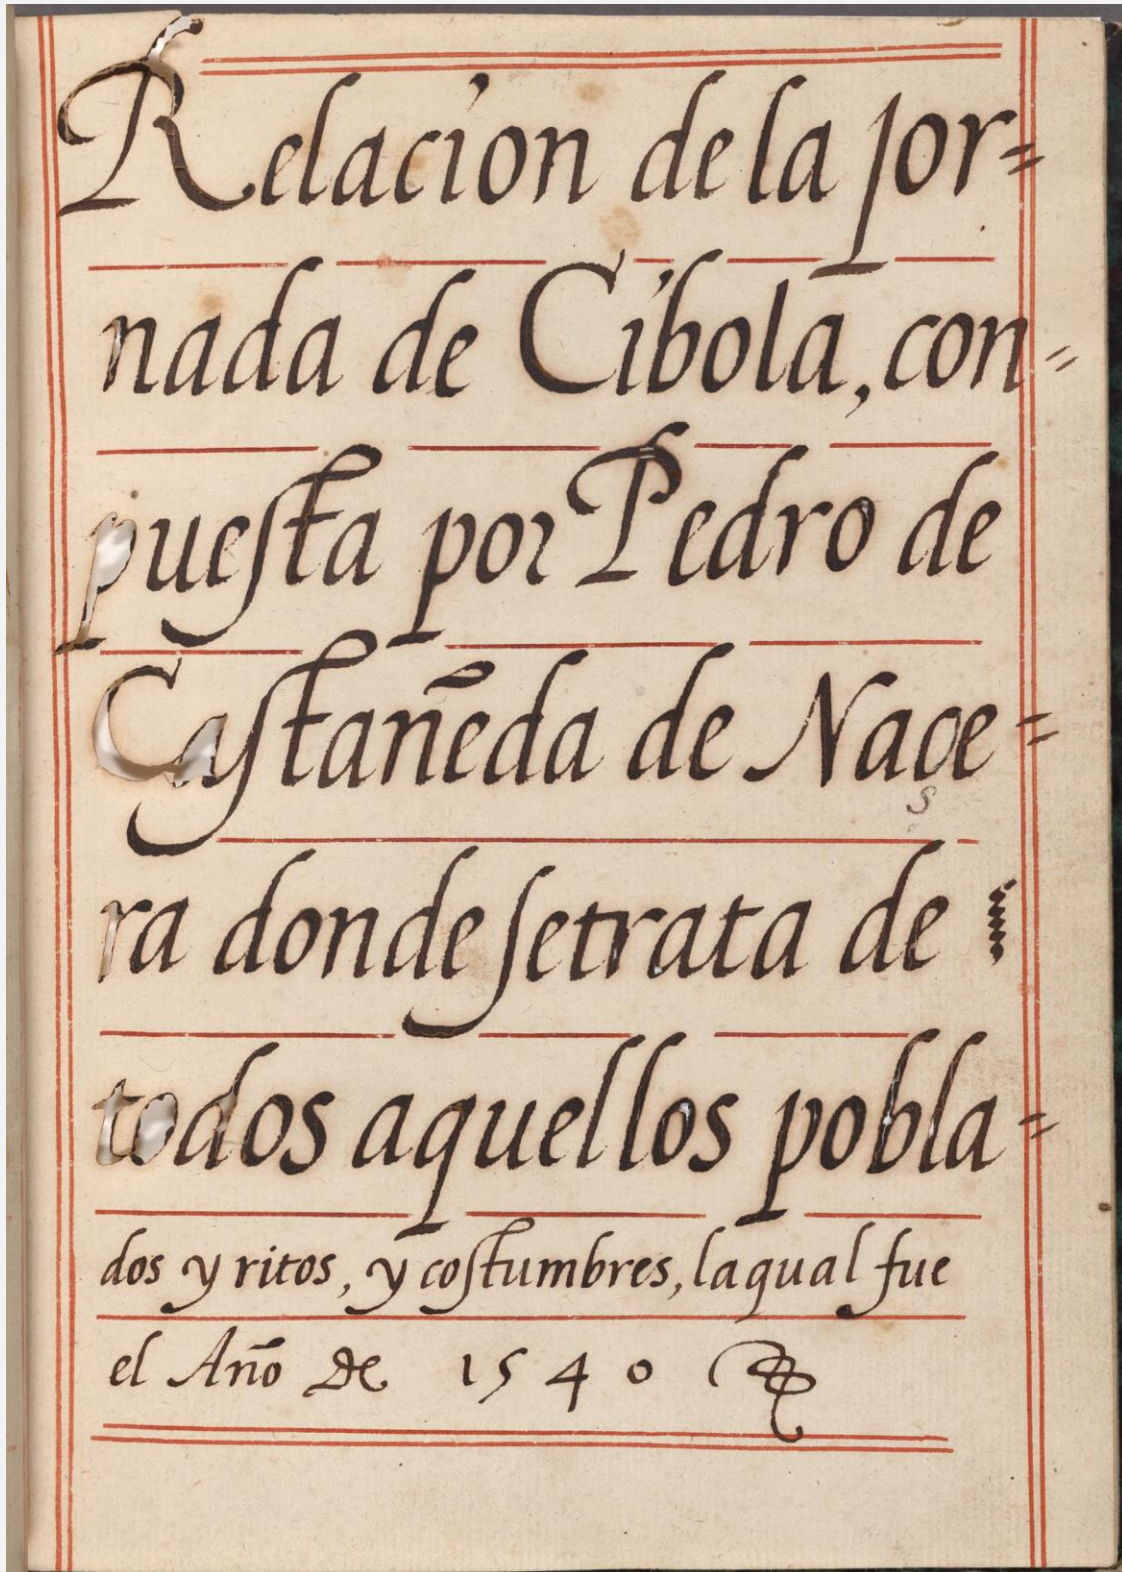 Relacion de la Jor=
nada de Cibola, con=
puesta por Pedro de
Castañeda de Naçe=
ra donde setrata de
todos aquellos pobla=
dos y ritos, y costumbres, laqual fue
el Año de 1540